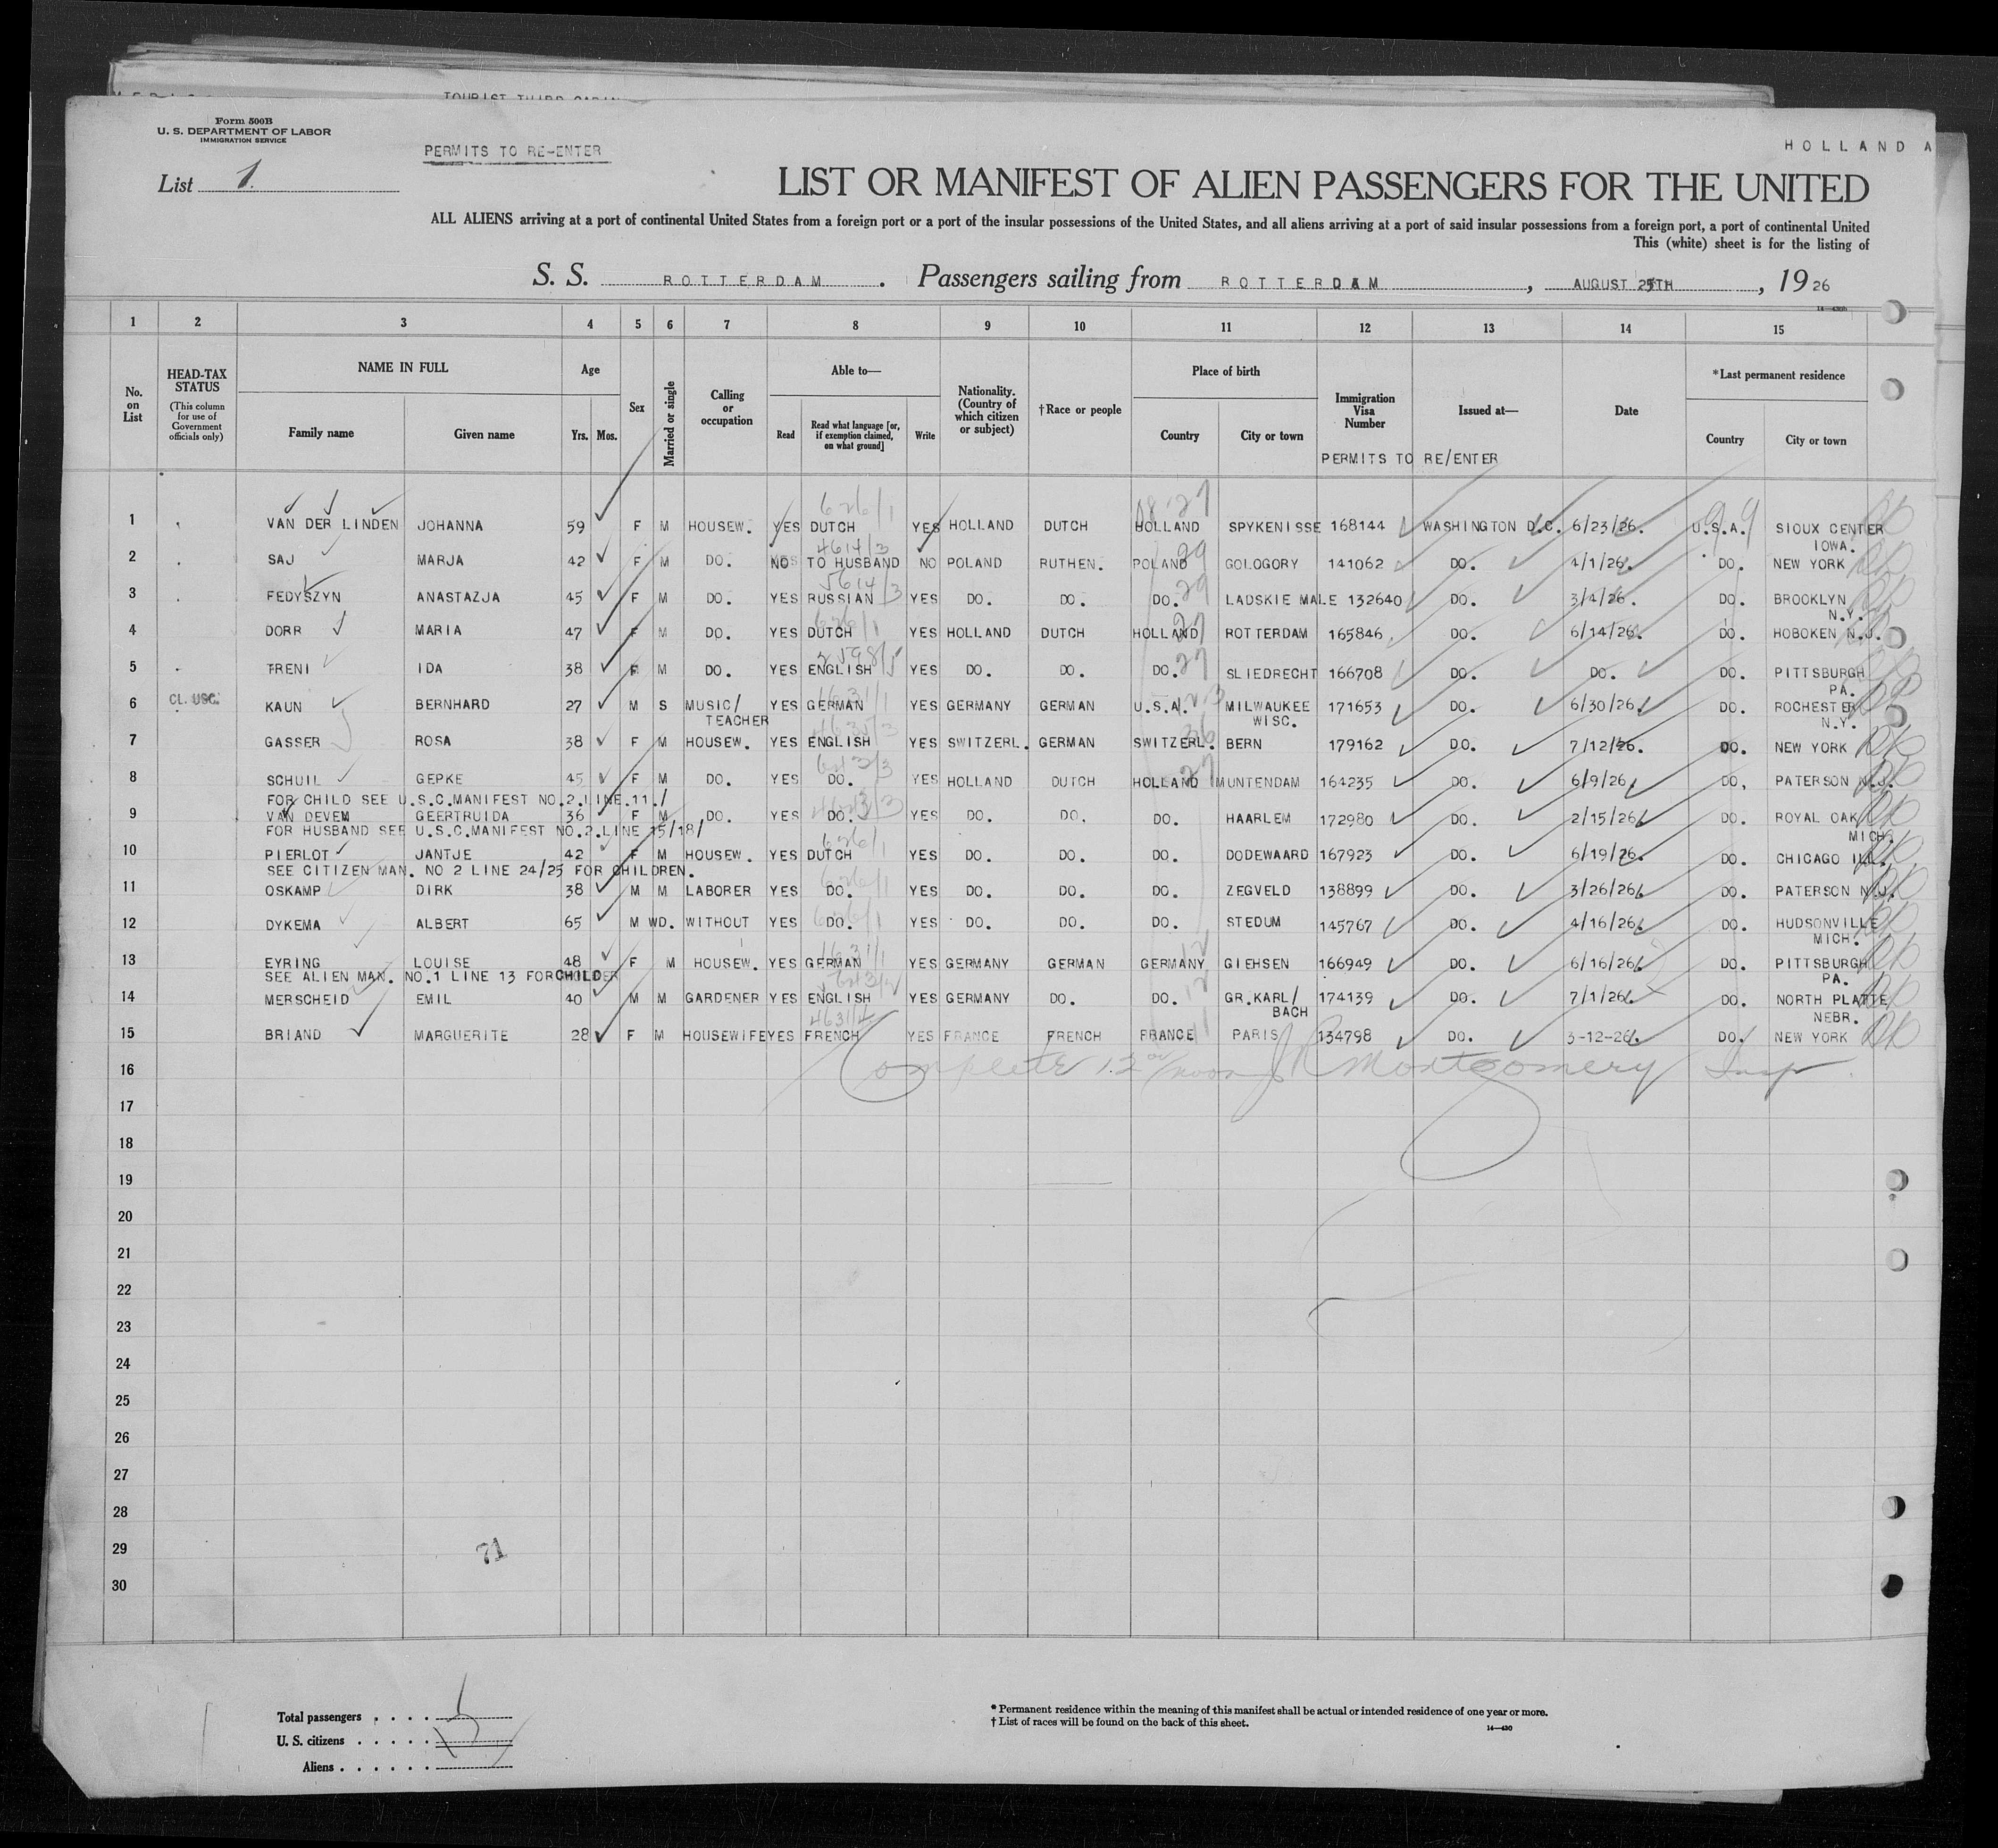 TOURIST THIRD CABIN
Form 500B
U. S. DEPARTMENT OF LABOR
IMMIGRATION SERVICE
PERMITS TO RE-ENTER
HOLLAND A
List 1.
LIST OR MANIFEST OF ALIEN PASSENGERS FOR THE UNITED
ALL ALIENS arriving at a port of continental United States from a foreign port or a port of the insular possessions of the United States, and all aliens arriving at a port of said insular possessions from a foreign port, a port of continental United
This (white) sheet is for the listing of
S. S. ROTTERDAM . Passengers sailing from ROTTERDAM , AUGUST 25TH , 19 26
1 2 3 4 5 6 7 8 9 10 11 12 13 14 15
No. on List HEAD-TAX STATUS (This column for use of Government officials only) NAME IN FULL Age Sex Married or single Calling or occupation Able to— Nationality. (Country of which citizen or subject) †Race or people Place of birth Immigration Visa Number Issued at— Date *Last permanent residence
Family name Given name Yrs. Mos. Read Read what language [or, if exemption claimed, on what ground] Write Country City or town Country City or town
PERMITS TO RE/ENTER
1 VAN DER LINDEN JOHANNA 59 F M HOUSEW. YES DUTCH YES HOLLAND DUTCH HOLLAND SPYKENISSE 168144 WASHINGTON D.C. 6/23/26. U.S.A. SIOUX CENTER
IOWA.
2 SAJ MARJA 42 F M DO. NO TO HUSBAND NO POLAND RUTHEN. POLAND GOLOGORY 141062 DO. 4/1/26. DO. NEW YORK
3 FEDYSZYN ANASTAZJA 45 F M DO. YES RUSSIAN YES DO. DO. DO. LADSKIE MALE 132640 DO. 3/4/26. DO. BROOKLYN
N.Y.
4 DORR MARIA 47 F M DO. YES DUTCH YES HOLLAND DUTCH HOLLAND ROTTERDAM 165846 DO. 6/14/26. DO. HOBOKEN N.J.
5 TRENI IDA 38 F M DO. YES ENGLISH YES DO. DO. DO. SLIEDRECHT 166708 DO. DO. DO. PITTSBURGH
PA.
6 CL. USC. KAUN BERNHARD 27 M S MUSIC/ YES GERMAN YES GERMANY GERMAN U.S.A. MILWAUKEE 171653 DO. 6/30/26. DO. ROCHESTER
TEACHER WISC. N.Y.
7 GASSER ROSA 38 F M HOUSEW. YES ENGLISH YES SWITZERL. GERMAN SWITZERL. BERN 179162 DO. 7/12/26. DO. NEW YORK
8 SCHUIL GEPKE 45 F M DO. YES DO. YES HOLLAND DUTCH HOLLAND MUNTENDAM 164235 DO. 6/9/26. DO. PATERSON N.J.
FOR CHILD SEE U.S.C.MANIFEST NO.2.LINE.11./
9 VAN DEVEM GEERTRUIDA 36 F M DO. YES DO. YES DO. DO. DO. HAARLEM 172980 DO. 2/15/26. DO. ROYAL OAK
MICH.
FOR HUSBAND SEE U.S.C.MANIFEST NO.2.LINE 15/18/
10 PIERLOT JANTJE 42 F M HOUSEW. YES DUTCH YES DO. DO. DO. DODEWAARD 167923 DO. 6/19/26. DO. CHICAGO ILL.
SEE CITIZEN MAN. NO 2 LINE 24/25 FOR CHILDREN.
11 OSKAMP DIRK 38 M M LABORER YES DO. YES DO. DO. DO. ZEGVELD 138899 DO. 3/26/26. DO. PATERSON N.J.
12 DYKEMA ALBERT 65 M WD. WITHOUT YES DO. YES DO. DO. DO. STEDUM 145767 DO. 4/16/26. DO. HUDSONVILLE
MICH.
13 EYRING LOUISE 48 F M HOUSEW. YES GERMAN YES GERMANY GERMAN GERMANY GIEHSEN 166949 DO. 6/16/26. DO. PITTSBURGH
PA.
SEE ALIEN MAN. NO.1 LINE 13 FORCHILDER
14 MERSCHEID EMIL 40 M M GARDENER YES ENGLISH YES GERMANY DO. DO. GR.KARL/ 174139 DO. 7/1/26. DO. NORTH PLATTE
BACH NEBR.
15 BRIAND MARGUERITE 28 F M HOUSEWIFE YES FRENCH YES FRANCE FRENCH FRANCE PARIS 134798 DO. 3-12-26. DO. NEW YORK
16 Complete 12 noon J R Montgomery Insp
17
18
19
20
21
22
23
24
25
26
27
28
29
30
71
Total passengers
U. S. citizens
Aliens
* Permanent residence within the meaning of this manifest shall be actual or intended residence of one year or more.
† List of races will be found on the back of this sheet.
14—430